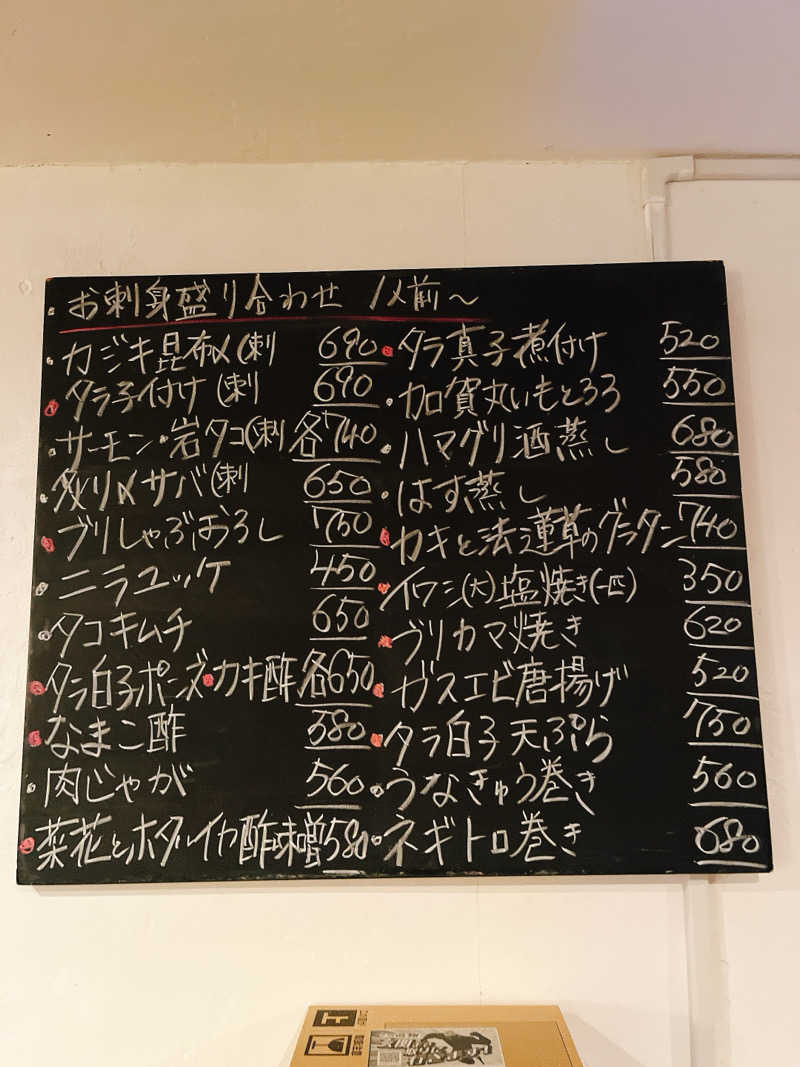 お刺身盛り合わせ 1人前〜
カジキ昆布〆(刺 690
タラ子付け(刺 690
サーモン・岩タコ(刺 各740
炙り〆サバ(刺 650
ブリしゃぶおろし 750
ニラユッケ 450
タコキムチ 650
タラ白子ポンズ・カキ酢 各650
なまこ酢 580
肉じゃが 560
菜花とホタルイカ酢味噌 580
タラ真子煮付け 520
加賀丸いもとろろ 550
ハマグリ酒蒸し 680
はす蒸し 580
カキと法蓮草のグラタン 740
イワシ(大)塩焼き(一匹) 350
ブリカマ焼き 620
ガスエビ唐揚げ 520
タラ白子天ぷら 750
うなきゅう巻き 560
ネギトロ巻き 680